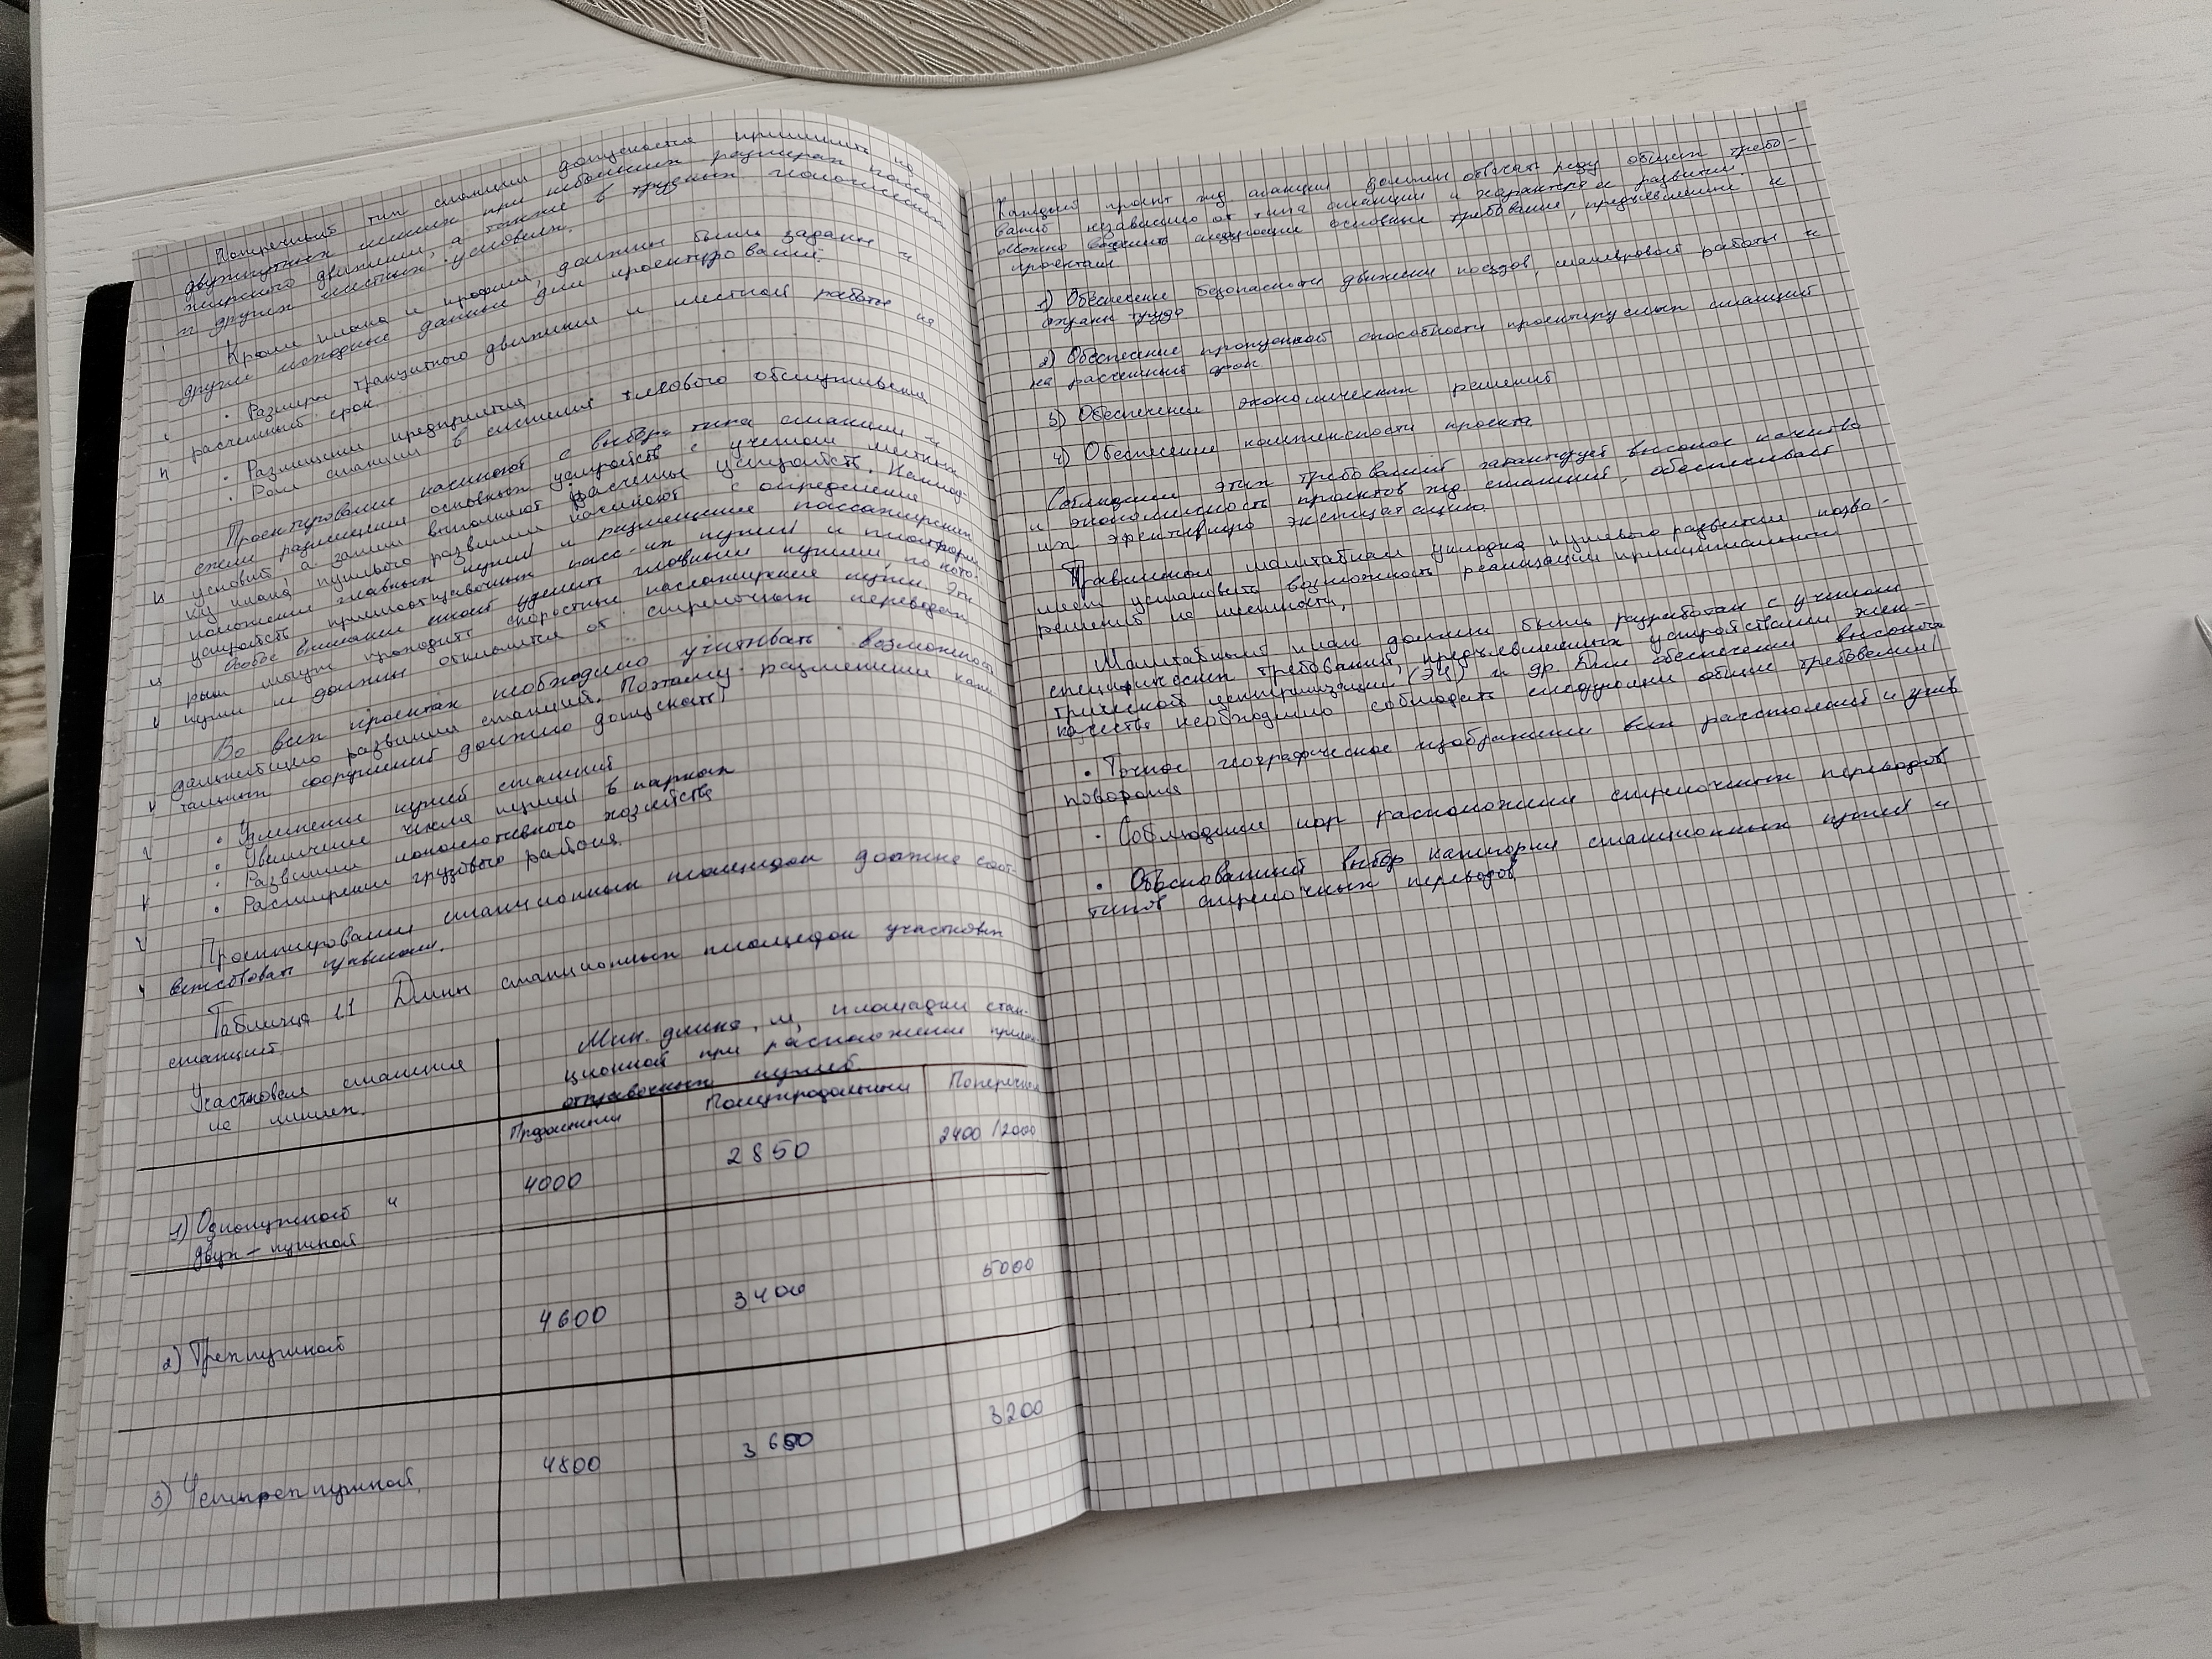 Поперечный тип станции допускается применять на
двухпутных линиях при небольших размерах пасса-
жирского движения, а также в трудных топографических
и других местных условиях.
Кроме плана и профиля, должны быть заданы и
другие исходные данные для проектирования:
• Размеры транзитного движения и местной работы на
расчетный срок
• Размещение предприятия
• Роль станции в системе тягового обслуживания
Проектирование начинают с выбора типа станции и
схемы размещения основных устройств с учетом местных
условий, а затем выполняют расчеты устройств.
ку плана путевого развития начинают с определения
положения главных путей и размещения пассажирских
устройств приемоотправочных пасс-их путей и платформ.
Особое внимание нужно уделить главным путям, по кото-
рым могут проходить скоростные пассажирские поезда. Эти
пути не должны отклоняться от стрелочных переводах
Во всех проектах необходимо учитывать возможность
дальнейшего развития станций. Поэтому размещение капи-
тальных сооружений должно допускать:
• Удлинение путей станций
• Увеличение числа путей в парках
• Развитие локомотивного хозяйства
• Расширение грузового района.
Проектирование станционных площадок должно соот-
ветствовать правилам.
Таблица 1.1 Длины станционных площадок участковых
станций.
Участковая станция
на линиях.
Мин. длина, м, площадки стан-
ционной при расположении приемо-
отправочных путей.
Продольный Полупродольный Поперечный
1) Однопутной и
двух-путной
4000 2850 2400/2000
2) Трехпутной 4600 3400 5000
3) Четырехпутной. 4800 3650 3200
Каждый проект жд станции должен отвечать ряду общих требо-
ваний независимо от типа станции и характера её развития
можно выделить следующие основные требования, предъявляемые к
проектам
1) Обеспечение безопасности движения поездов, маневровой работы и
охраны труда
2) Обеспечение пропускной способности проектируемых станций
на расчетный срок
3) Обеспечение экономических решений
4) Обеспечение комплексности проекта
Соблюдение этих требований гарантирует высокое качество
и экономичность проектов жд станций, обеспечивает
их эфективную эксплуатацию.
Правильная масштабная укладка путевого развития позво-
ляет установить возможность реализации принципиальных
решений на местности,
Масштабный план должен быть разработан с учетом
специфических требований, предъявляемых устройствами элек-
трической централизации (ЭЦ) и др. Для обеспечения высокого
качества необходимо соблюдать следующие общие требования:
• Точное географическое изображение всех расстояний и углов
поворота
• Соблюдение нор расположения стрелочных переводов
• Обоснованный выбор категории станционных путей и
типов стрелочных переводов